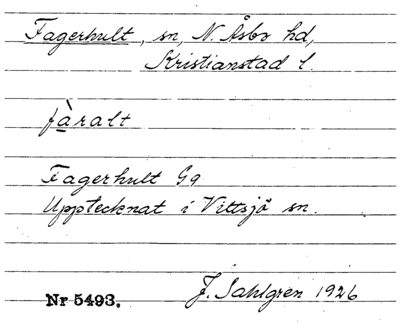 Fagerhult, sn, N. Åsbo hd,
Kristianstad l.
fàralt
Fagerhult Gg
Upptecknat i Vittsjö sn.
Nr 5493. J. Sahlgren 1926